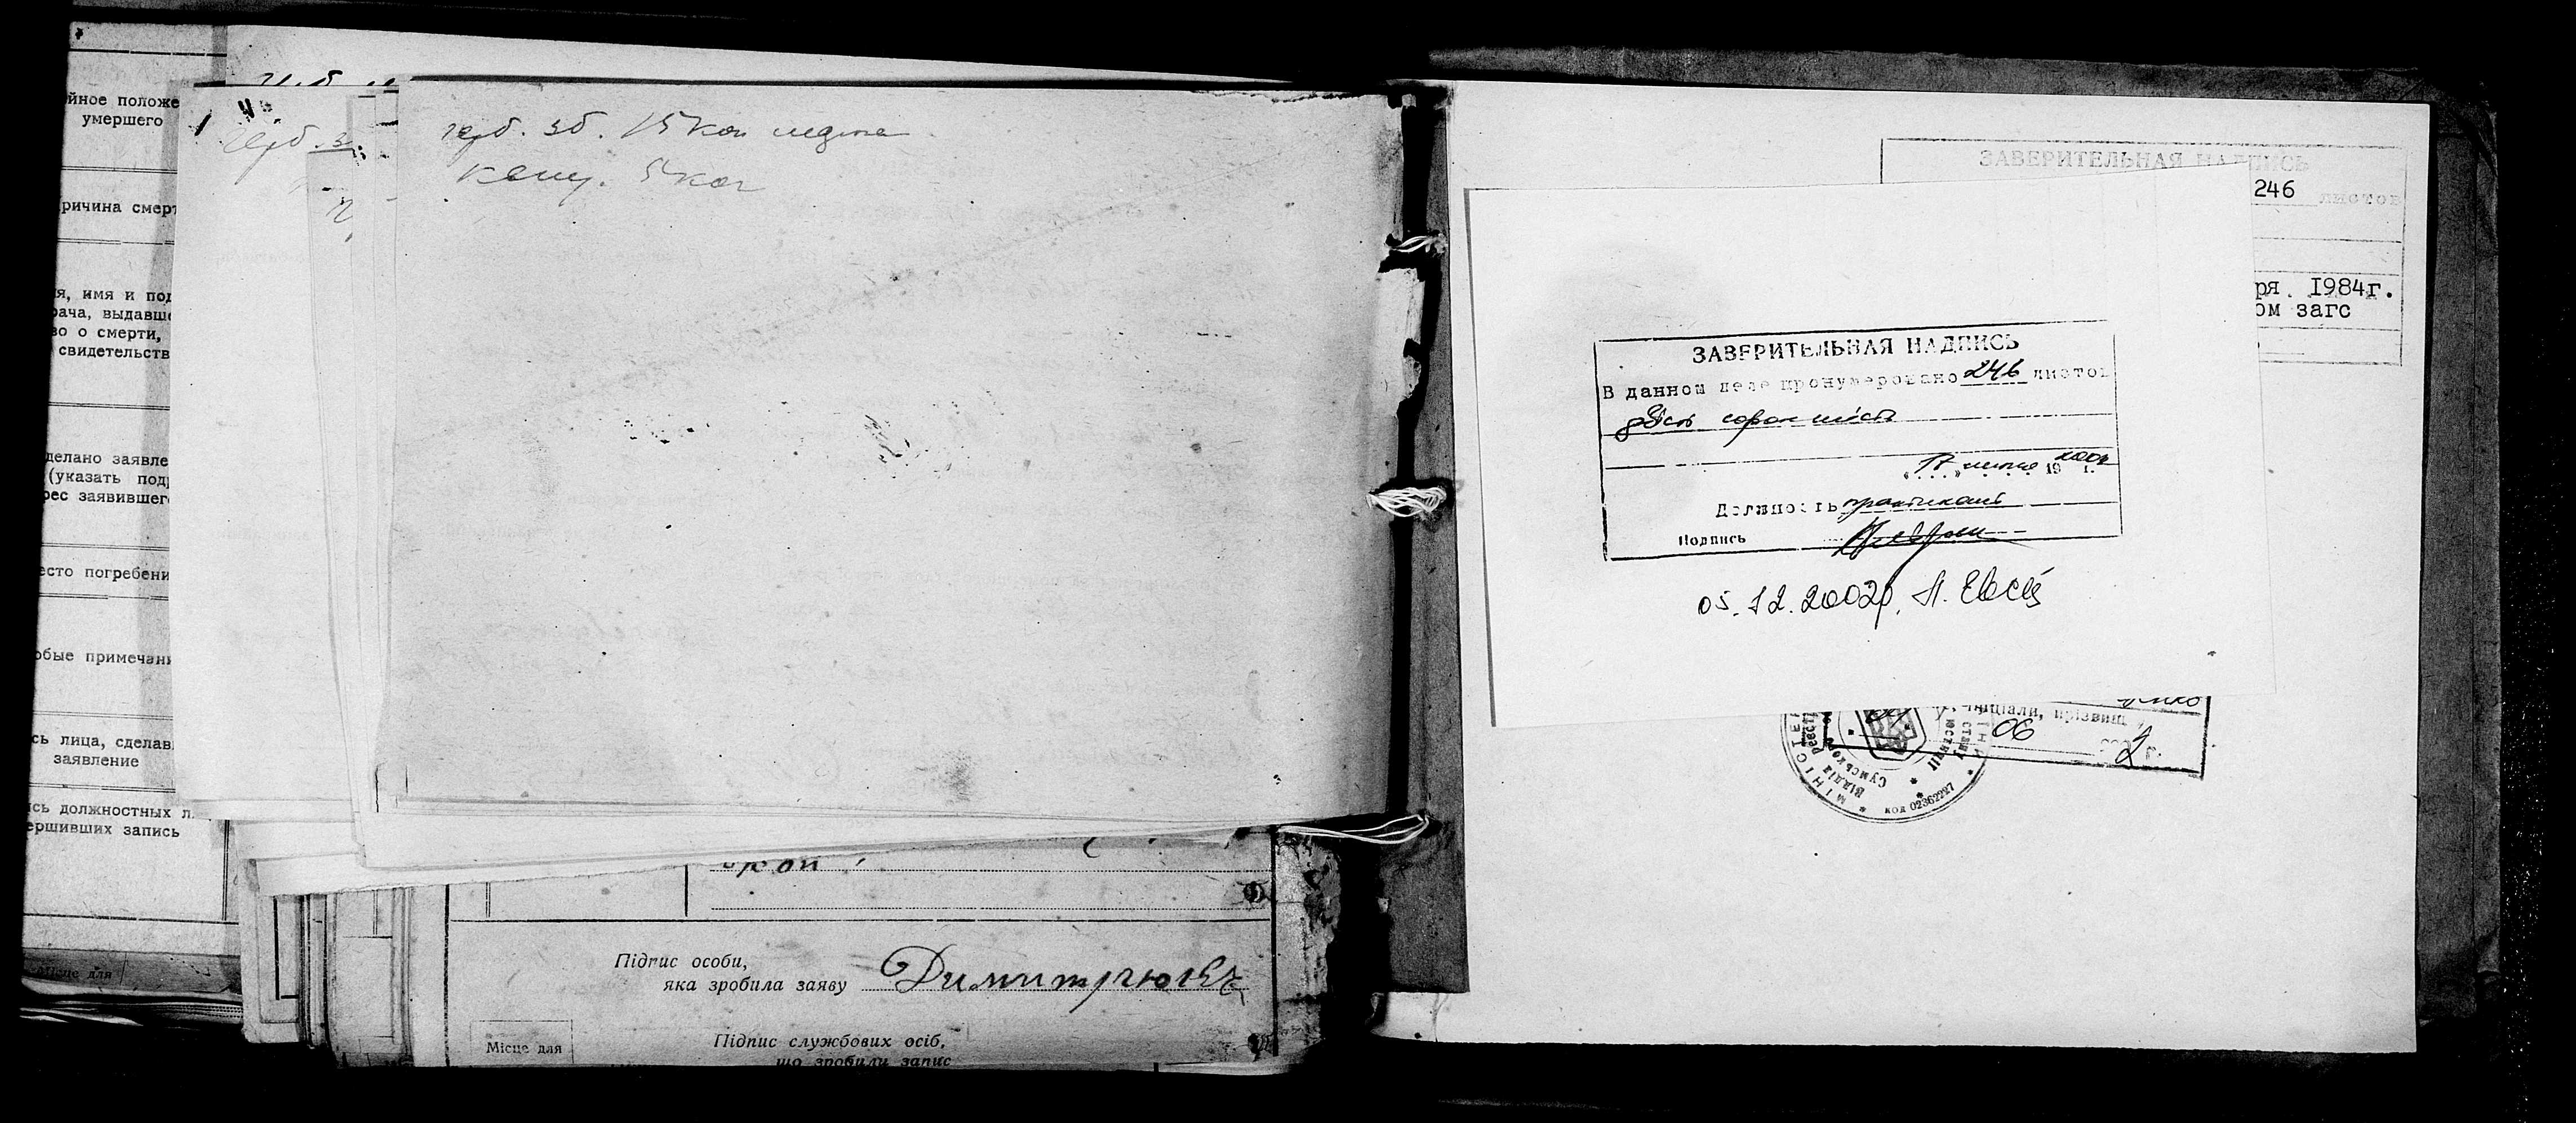 йное положе
умершего
ричина смерт
я, имя и под
рача, выдавше
во о смерти,
свидетельств
делано заявле
(указать под
рес заявившег
есто погребени
обые примечани
сь лица, сделав
заявление
сь должностных л
ершивших запись
Місце для
герб. з
герб. зб. 15 коп
канц. 5 коп
Підпис особи,
яка зробила заяву
Місце для
Підпис службових осіб,
що зробили запис
ЗАВЕРИТЕЛЬНАЯ НАДПИСЬ
246 листов
ря 1984г.
ом загс
ЗАВЕРИТЕЛЬНАЯ НАДПИСЬ
В данном деле пронумеровано 246 листов
двісті сорок шість
«17» 19 2002 г.
Должность практикант
Подпись
05.12.2002р.
ініціали, прізвищ
06 2 г.
МІНІСТЕР
ЮСТИЦІЇ
Відділ реєстр
Сумського
код 02362227